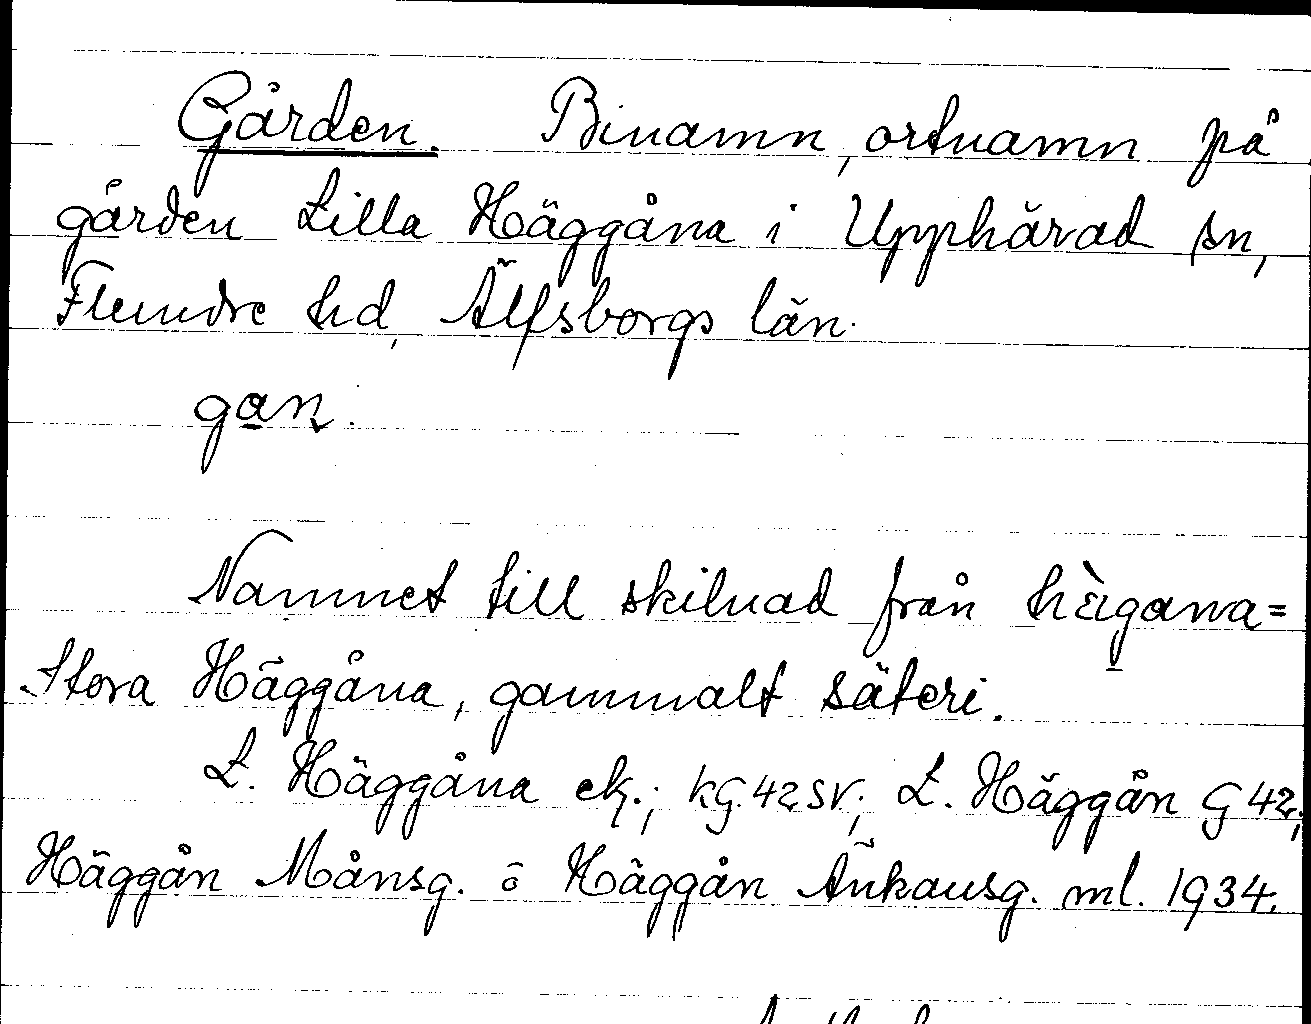 Gården. Binamn, ortnamn på
gården Lilla Häggåna i Upphärad sn,
Flundre hd, Älfsborgs län.
gan.
Namnet till skilnad från hægana=
Stora Häggåna, gammalt säteri.
L. Häggåna ek.; kG.42SV; L. Häggån G 42;
Häggån Månsg. o Häggån Änkansg. ml. 1934.